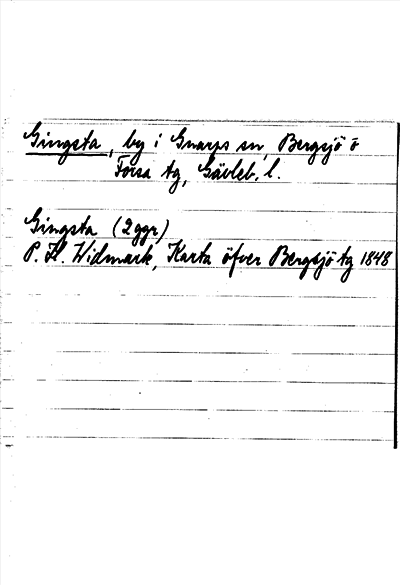 Gingsta, by i Gnarps sn, Bergsjö o
Forsa tg, Gävleb. l.
Gingsta (2 ggr)
P. H. Widmark, Karta öfver Bergsjö tg 1848